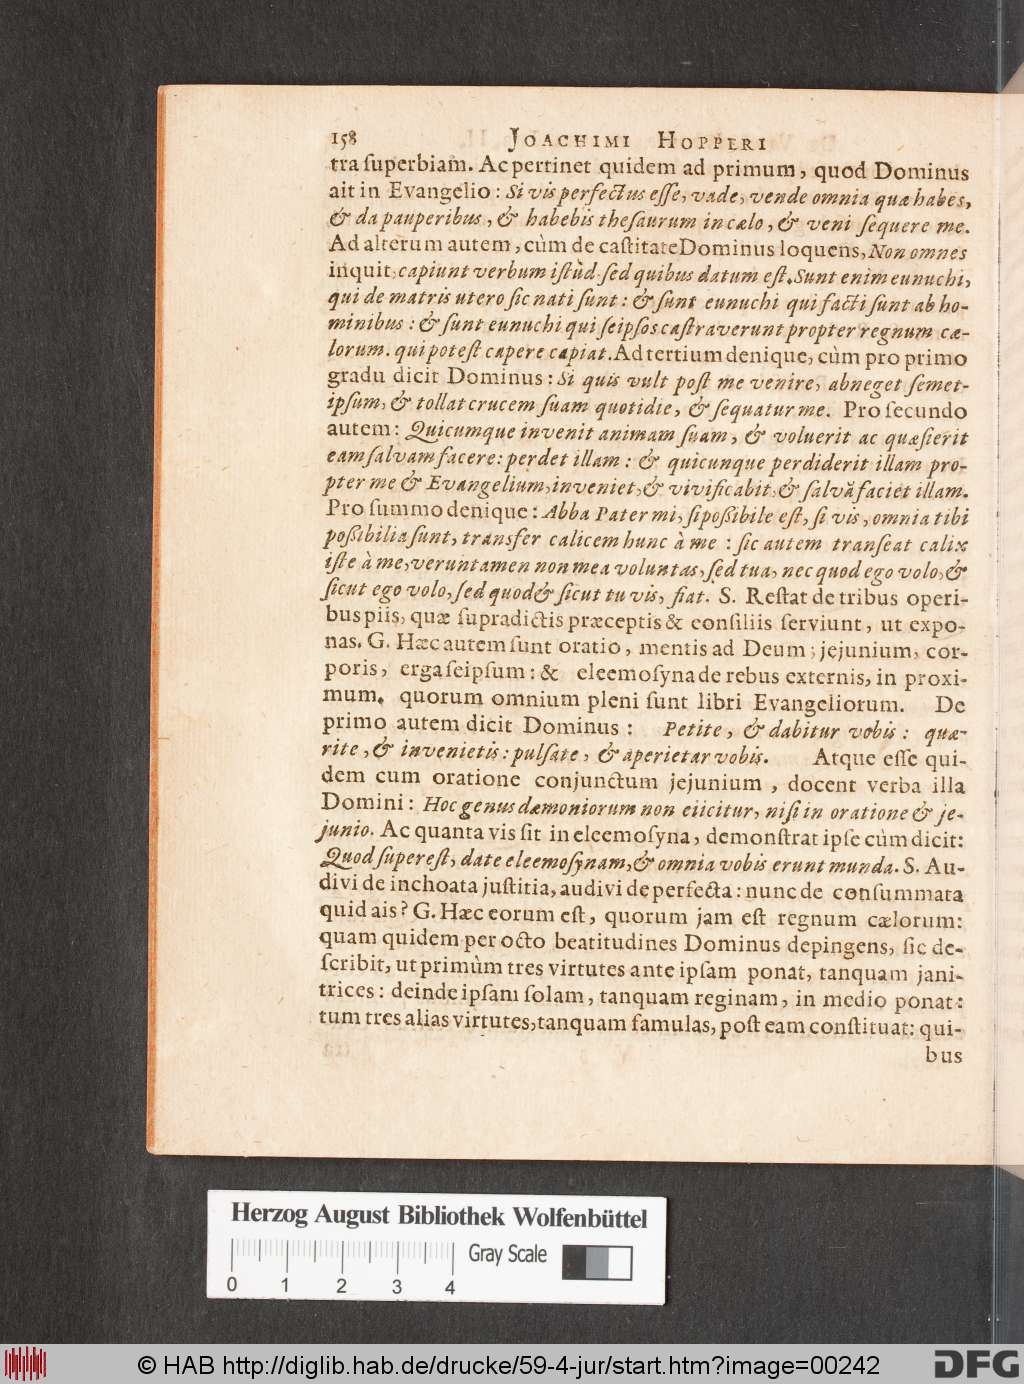 158 JOACHIMI HOPPERI
tra ſuperbiam. Ac pertinet quidem ad primum, quod Dominus
ait in Evangelio: Si vis perfectus eſſe, vade, vende omnia quæ habes,
& da pauperibus, & habebis theſaurum in cælo, & veni ſequere me.
Ad alterum autem, cùm de caſtitate Dominus loquens, Non omnes
inquit, capiunt verbum iſtùd ſed quibus datum eſt. Sunt enim eunuchi,
qui de matris utero ſic nati ſunt: & ſunt eunuchi qui facti ſunt ab ho-
minibus: & ſunt eunuchi qui ſeipſos caſtraverunt propter regnum cæ-
lorum. qui poteſt capere capiat. Ad tertium denique, cùm pro primo
gradu dicit Dominus: Si quis vult poſt me venire, abneget ſemet-
ipſum, & tollat crucem ſuam quotidie, & ſequatur me. Pro ſecundo
autem: Quicumque invenit animam ſuam, & voluerit ac quæſierit
eam ſalvam facere: perdet illam: & quicunque perdiderit illam pro-
pter me & Evangelium, inveniet, & vivificabit, & ſalvã faciet illam.
Pro ſummo denique: Abba Pater mi, ſi poßibile eſt, ſi vis, omnia tibi
poßibilia ſunt, transfer calicem hunc à me: ſic autem tranſeat calix
iſte à me, veruntamen non mea voluntas, ſed tua, nec quod ego volo, &
ſicut ego volo, ſed quod & ſicut tu vis, fiat. S. Reſtat de tribus operi-
bus piis, quæ ſupradictis præceptis & conſiliis ſerviunt, ut expo-
nas. G. Hæc autem ſunt oratio, mentis ad Deum; jejunium, cor-
poris, erga ſeipſum: & eleemoſyna de rebus externis, in proxi-
mum. quorum omnium pleni ſunt libri Evangeliorum. De
primo autem dicit Dominus: Petite, & dabitur vobis: quæ-
rite, & invenietis: pulſate, & aperietar vobis. Atque eſſe qui-
dem cum oratione conjunctum jejunium, docent verba illa
Domini: Hoc genus dæmoniorum non eiicitur, niſi in oratione & je-
junio. Ac quanta vis ſit in eleemoſyna, demonſtrat ipſe cùm dicit:
Quod ſupereſt, date eleemoſynam, & omnia vobis erunt munda. S. Au-
divi de inchoata juſtitia, audivi de perfecta: nunc de conſummata
quid ais? G. Hæc eorum eſt, quorum jam eſt regnum cælorum:
quam quidem per octo beatitudines Dominus depingens, ſic de-
ſcribit, ut primùm tres virtutes ante ipſam ponat, tanquam jani-
trices: deinde ipſam ſolam, tanquam reginam, in medio ponat:
tum tres alias virtutes, tanquam famulas, poſt eam conſtituat: qui-
bus
Herzog August Bibliothek Wolfenbüttel
Gray Scale
0 1 2 3 4
© HAB http://diglib.hab.de/drucke/59-4-jur/start.htm?image=00242
DFG